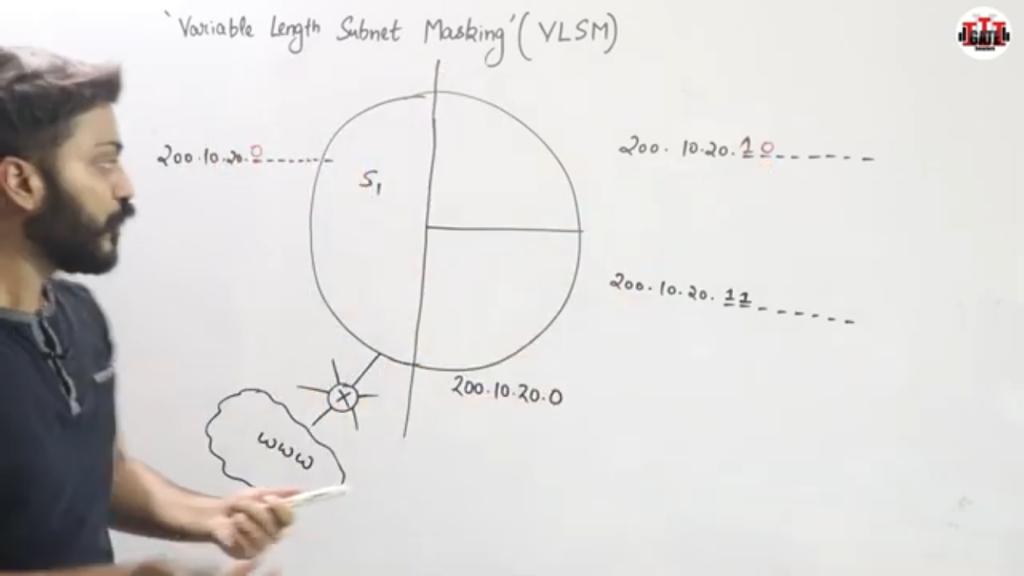 'Variable Length Subnet Masking' (VLSM)
GATE
200.10.20.0-------
S1
200. 10.20. 10------
200.10.20. 11------
200.10.20.0
X
www